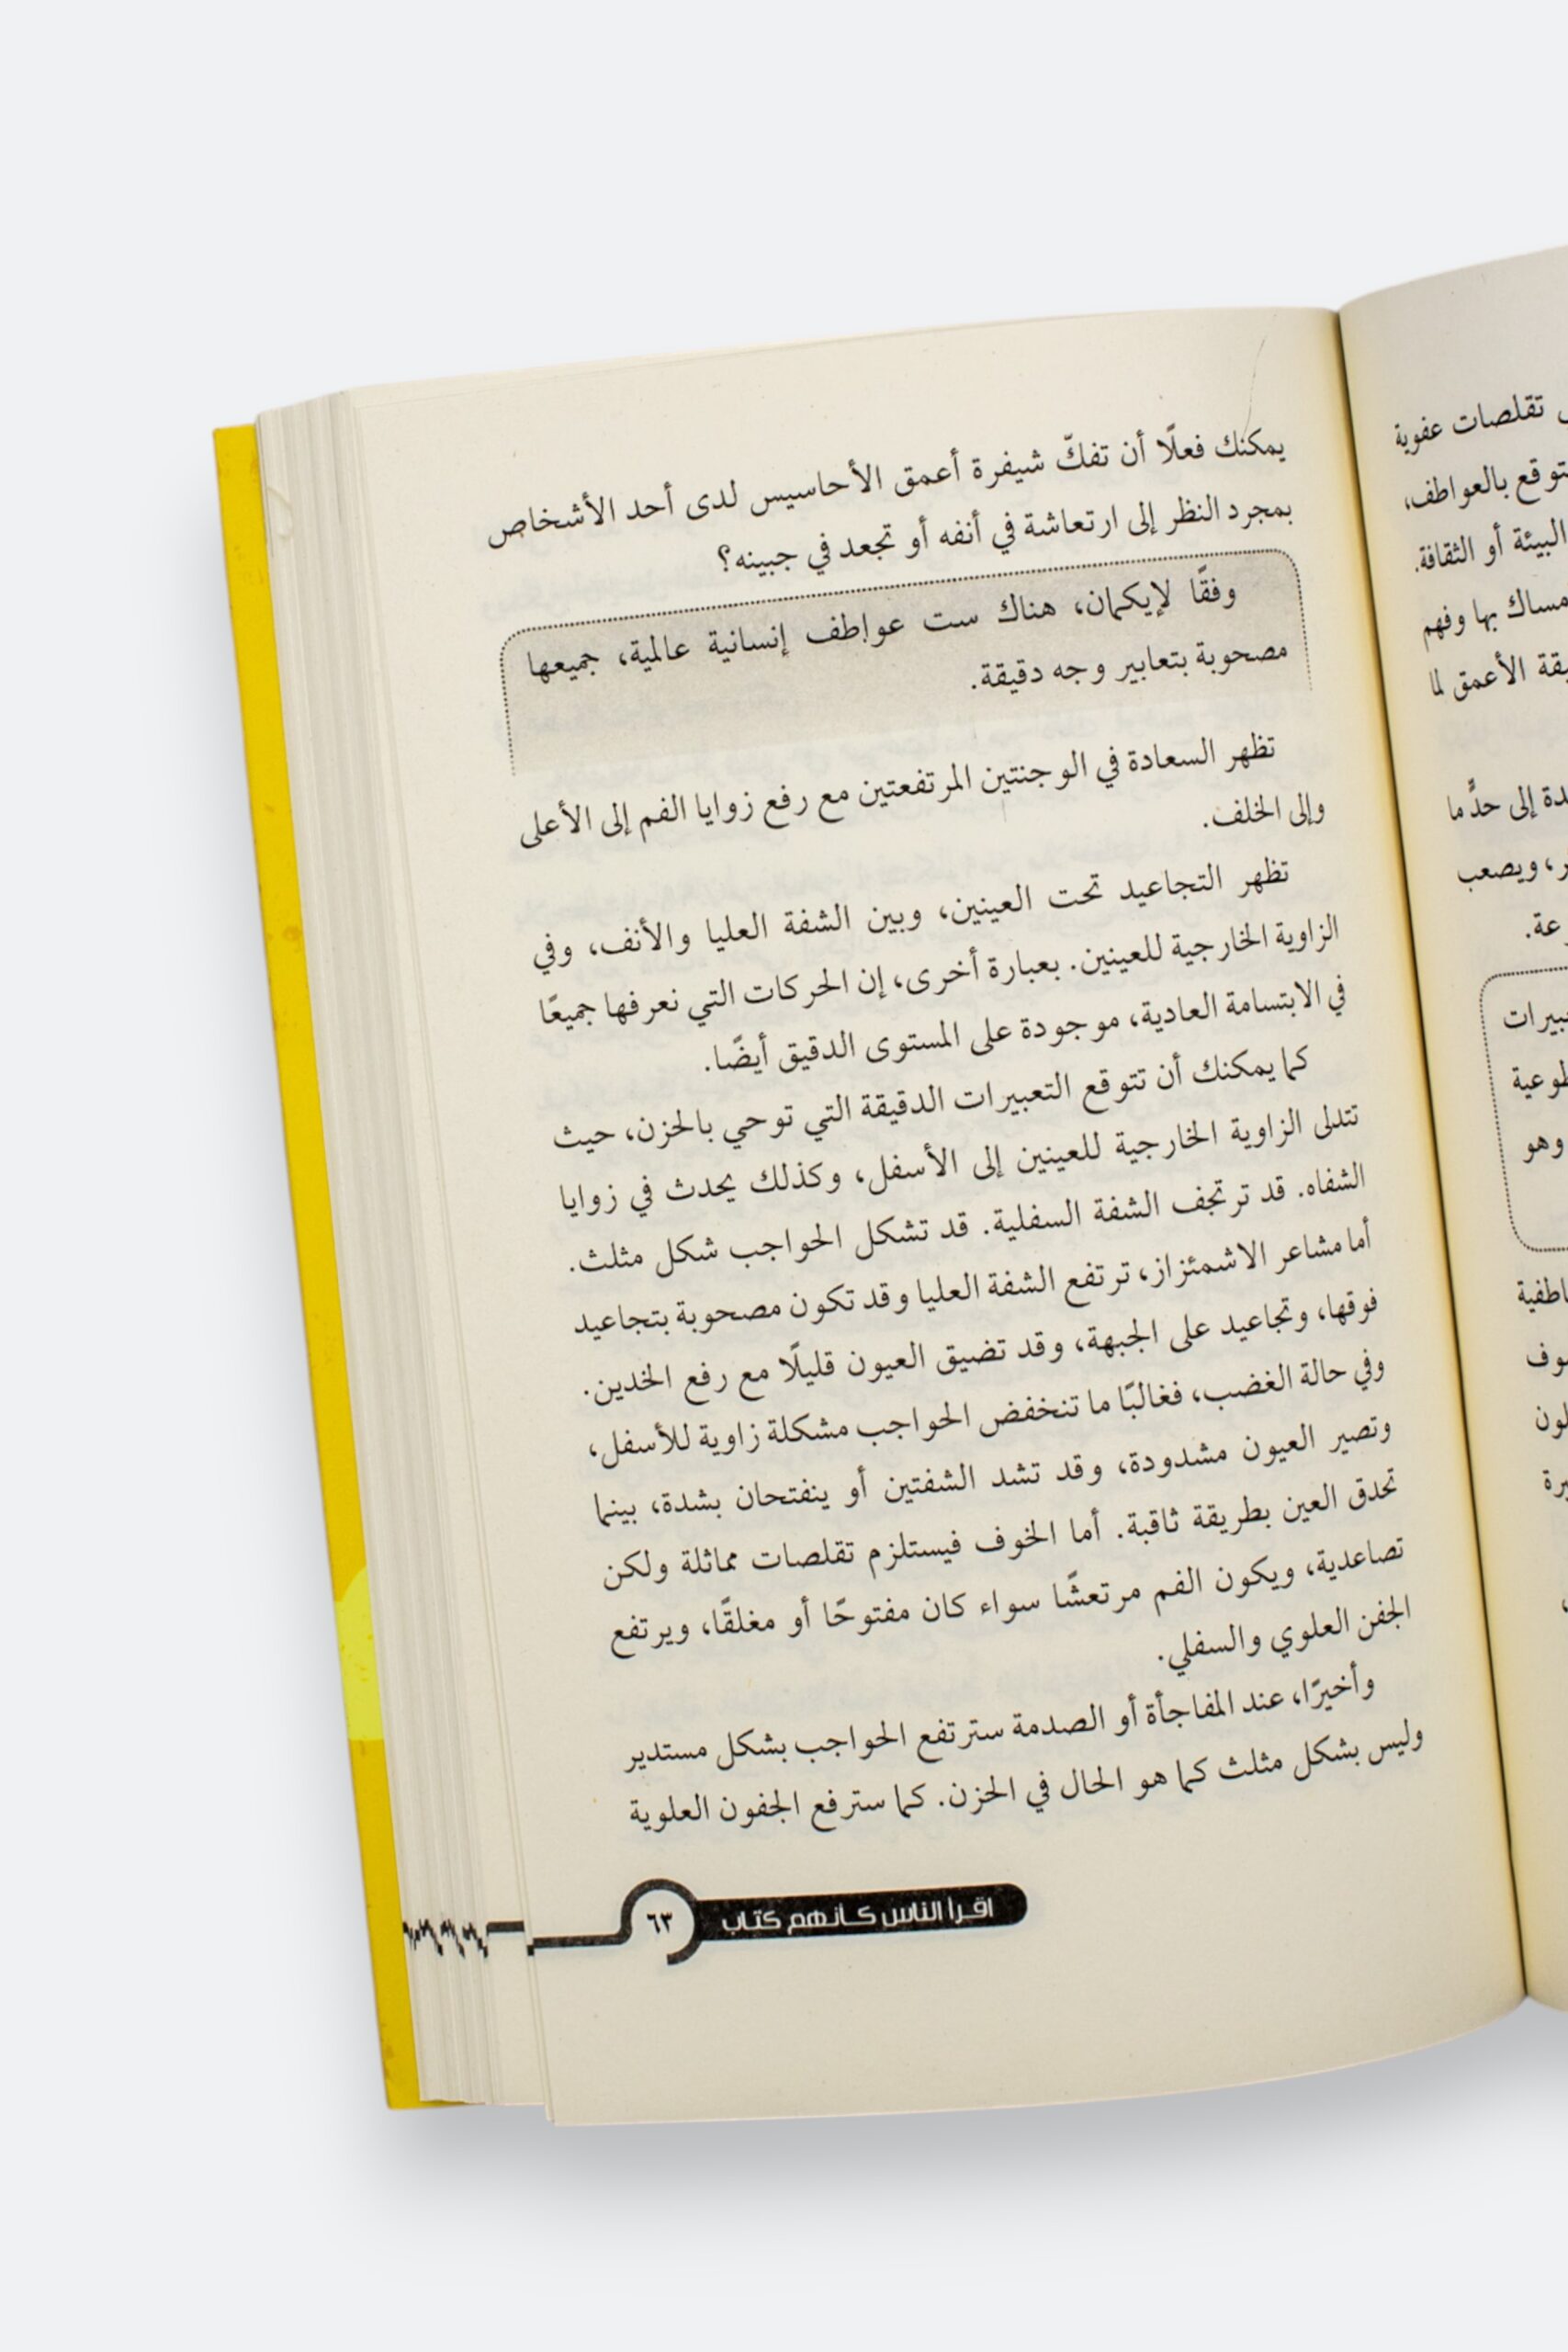 يمكنك فعلًا أن تفكّ شيفرة أعمق الأحاسيس لدى أحد الأشخاص
بمجرد النظر إلى ارتعاشة في أنفه أو تجعد في جبينه؟
وفقًا لإيكمان، هناك ست عواطف إنسانية عالمية، جميعها
مصحوبة بتعابير وجه دقيقة.
تظهر السعادة في الوجنتين المرتفعتين مع رفع زوايا الفم إلى الأعلى
وإلى الخلف.
تظهر التجاعيد تحت العينين، وبين الشفة العليا والأنف، وفي
الزاوية الخارجية للعينين. بعبارة أخرى، إن الحركات التي نعرفها جميعًا
في الابتسامة العادية، موجودة على المستوى الدقيق أيضًا.
كما يمكنك أن تتوقع التعبيرات الدقيقة التي توحي بالحزن، حيث
تتدلى الزاوية الخارجية للعينين إلى الأسفل، وكذلك يحدث في زوايا
الشفاه. قد ترتجف الشفة السفلية. قد تشكل الحواجب شكل مثلث.
أما مشاعر الاشمئزاز، ترتفع الشفة العليا وقد تكون مصحوبة بتجاعيد
فوقها، وتجاعيد على الجبهة، وقد تضيق العيون قليلًا مع رفع الخدين.
وفي حالة الغضب، فغالبًا ما تنخفض الحواجب مشكلة زاوية للأسفل،
وتصير العيون مشدودة، وقد تشد الشفتين أو ينفتحان بشدة، بينما
تحدق العين بطريقة ثاقبة. أما الخوف فيستلزم تقلصات مماثلة ولكن
تصاعدية، ويكون الفم مرتعشًا سواء كان مفتوحًا أو مغلقًا، ويرتفع
الجفن العلوي والسفلي.
وأخيرًا، عند المفاجأة أو الصدمة سترتفع الحواجب بشكل مستدير
وليس بشكل مثلث كما هو الحال في الحزن. كما سترفع الجفون العلوية
اقرأ الناس كأنهم كتاب
٦٣
تقلصات عفوية
بالعواطف،
البيئة أو الثقافة.
بها وفهم
الأعمق لما
إلى حدٍّ ما
، ويصعب
وهو